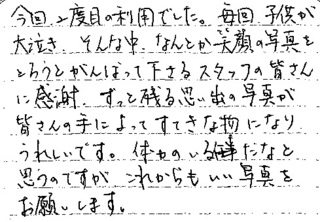 今回、2度目の利用でした。毎回、子供が
大泣き、そんな中、なんとか笑顔の写真を
とろうとがんばって下さるスタッフの皆さん
に感謝、ずっと残る思い出の写真が
皆さんの手によってすてきな物になり
うれしいです。体力のいる事だなと
思うのですが、これからもいい写真を
お願いします。